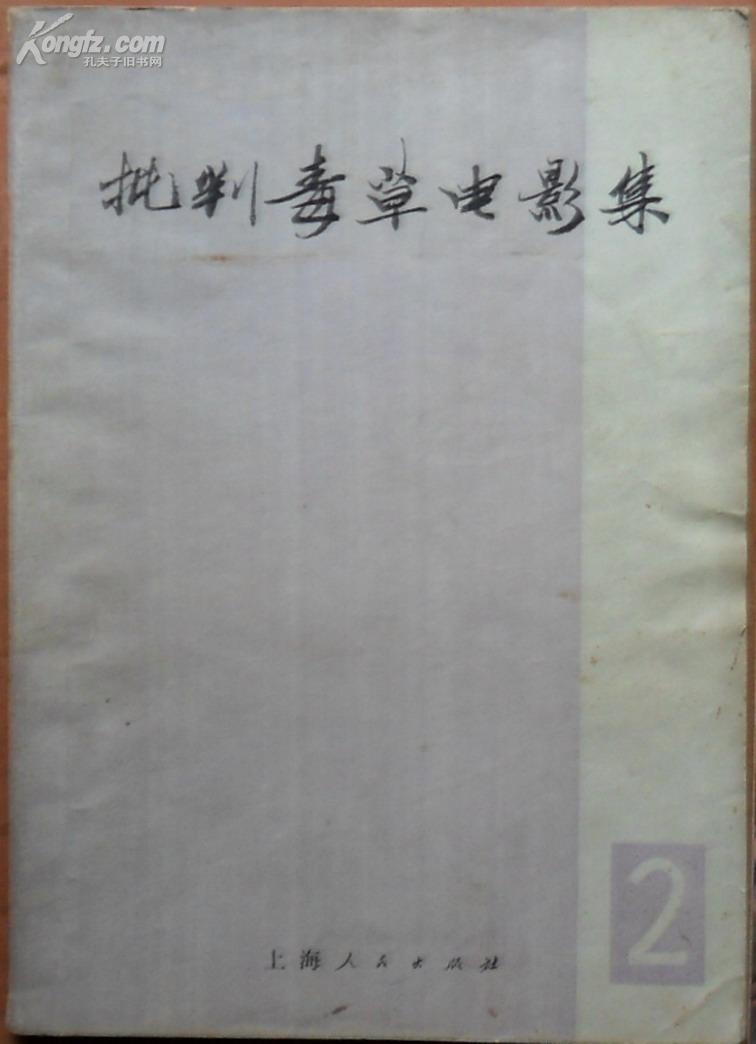 Kongfz.com
孔夫子旧书网
批判毒草电影集
2
上海人民出版社